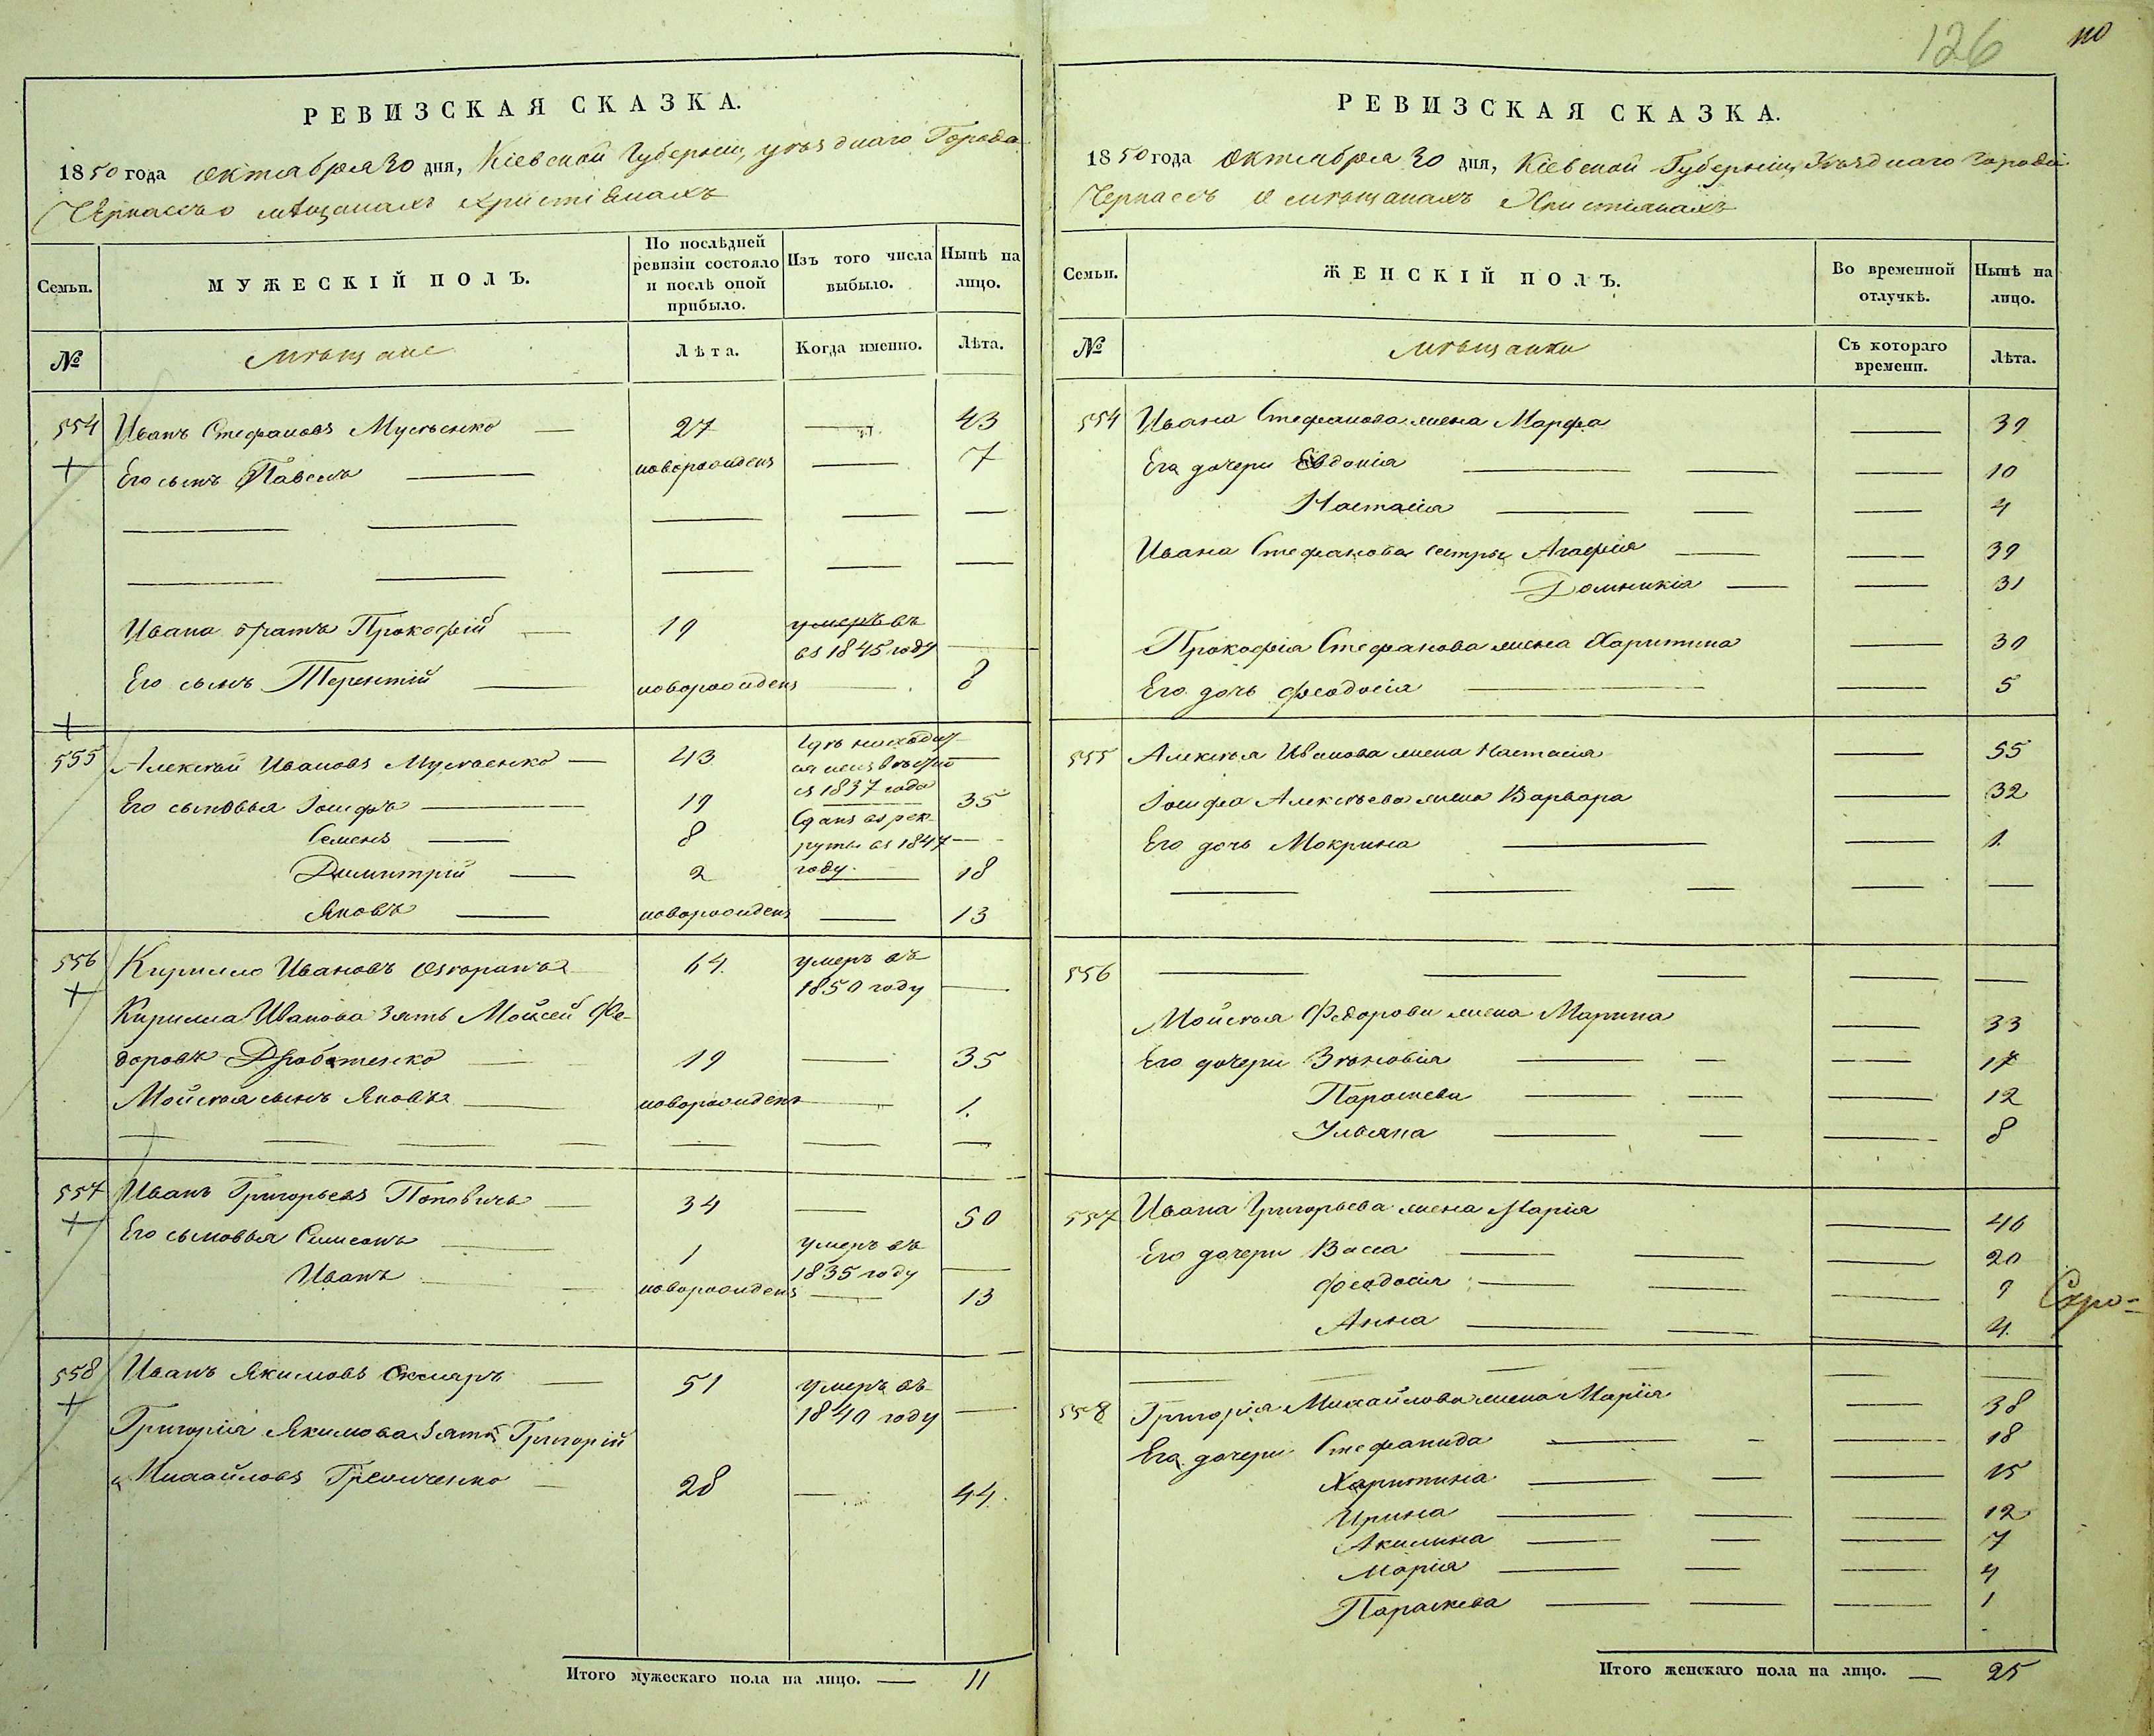 126
110
РЕВИЗСКАЯ СКАЗКА.
1850 года Октября 30 дня, Кіевской Губерніи, уѣзднаго Города
Черкассъ о мѣщанахъ христіянахъ
Семьи. МУЖЕСКІЙ ПОЛЪ. По послѣдней ревизіи состояло и послѣ оной прибыло. Изъ того числа выбыло. Нынѣ на лицо.
№ Мѣщане Лѣта. Когда именно. Лѣта.
554 Иванъ Стефановъ — 27 — 43
Его сынъ Павелъ — новорожденъ — 7
Ивана братъ Прокофій — 19 умеръ въ
въ 1845 году —
Его сынъ Терентій — новорожденъ — 8
555 Алексѣй Ивановъ — 43 Гдѣ находит
ся неизвѣстно —
съ 1837 года
Его сыновья Іосифъ — 19 — 35
Семенъ — 8 Сданъ въ рек
руты въ 1847 —
году.
Димитрій — 2 — 18
Яковъ — новорожденъ — 13
556 Кирилло Ивановъ 64. умеръ въ
1850 году —
Кирилла Иванова зять Мойсей Фе-
доровъ — 19 — 35
Мойсея сынъ Яковъ — новорожденъ — 1.
557 Иванъ Григорьевъ Поповичь — 34 — 50
Его сыновья Симеонъ — 1 умеръ въ
1835 году —
Иванъ — новорожденъ — 13
558 Иванъ Якимовъ Скляръ — 51 умеръ въ
1840 году —
Григорія Якимова зять Григорій
Михайловъ — 28 — 44.
Итого мужескаго пола на лицо. — 11
РЕВИЗСКАЯ СКАЗКА.
1850 года Октября 30 дня, Кіевской Губерніи, Уѣзднаго города
Черкассъ о мѣщанахъ Христіянахъ
Семьи. ЖЕНСКІЙ ПОЛЪ. Во временной отлучкѣ. Нынѣ на лицо.
№ Мѣщанки Съ котораго времени. Лѣта.
554 Ивана Стефанова жена Марфа — 39
Его дочери Евдокія — 10
Настасія — 4
Ивана Стефанова сестры Агафія — 39
Домникія — 31
Прокофія Стефанова жена Харитина — 30
Его дочь Феодосія — 5
555 Алексѣя Иванова жена Настасія — 55
Іосифа Алексѣева жена Варвара — 32
Его дочь Мокрина — 1.
556 — — — — —
Мойсея Федорова жена Марина — 33
Его дочери Зѣновія — 17
Параскева — 12
Ульяна — 8
557 Ивана Григорьева жена Марія — 40
Его дочери Васса — 20
Феодосія — 9
Анна — 4.
Скро-
558 Григорія Михайлова жена Марія — 38
Его дочери Стефанида — 18
Харитина — 15
Ирина — 12
Акилина — 7
Марія — 4
Параскева — 1
Итого женскаго пола на лицо. — 25